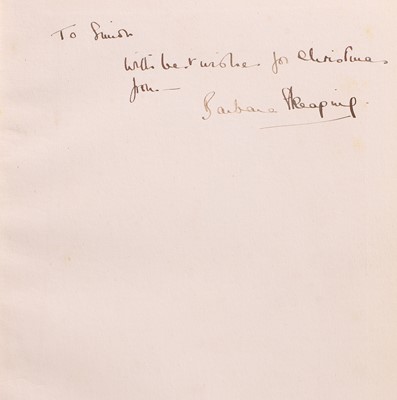 To Simon
With best wishes for Christmas
from —
Barbara Skeaping.